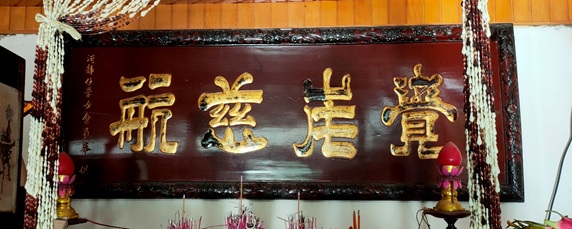 覺岸慈航